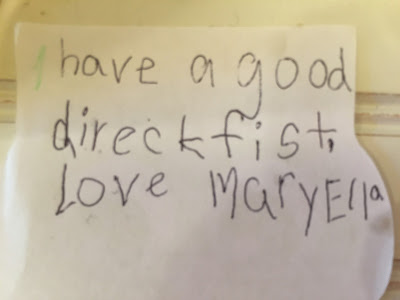 I have a good
direckfist,
Love MaryElla